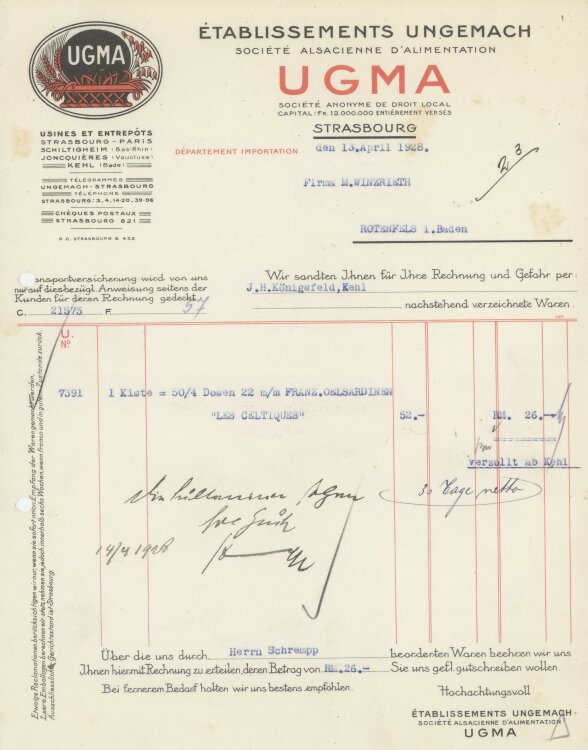 UGMA
ÉTABLISSEMENTS UNGEMACH
SOCIÉTÉ ALSACIENNE D'ALIMENTATION
UGMA
SOCIÉTÉ ANONYME DE DROIT LOCAL
CAPITAL: FR. 12.000.000 ENTIÈREMENT VERSÉS
STRASBOURG
USINES ET ENTREPÔTS
STRASBOURG - PARIS
SCHILTIGHEIM (Bas-Rhin)
JONCQUIÈRES (Vaucluse)
KEHL (Bade)
TÉLÉGRAMMES
UNGEMACH-STRASBOURG
TÉLÉPHONE
STRASBOURG: 3.4.14-20.39-96
CHÈQUES POSTAUX
STRASBOURG 621
R.C. STRASBOURG B 432
DÉPARTEMENT IMPORTATION
den 13.April 1928.
Firma M.WINZRIETH
ROTENFELS i.Baden
Transportversicherung wird von uns
nur auf diesbezügl. Anweisung seitens der
Kunden für deren Rechnung gedeckt.
C. 21575 F. 57
Wir sandten Ihnen für Ihre Rechnung und Gefahr per:
J.H.Königsfeld,Kehl
nachstehend verzeichnete Waren.
U.
No
7391 1 Kiste = 50/4 Dosen 22 m/m FRANZ.OELSARDINEN
"LES CELTIQUES" 52.- RM. 26.-
verzollt ab Kehl
30 Tage netto
14/4 1928
Etwaige Reclamationen berücksichtigen wir nur, wenn sie sofort nach Empfang der Waren gemacht werden.
Leere Emballagen berechnen wir stets, nehmen sie jedoch innerhalb sechs Wochen, wenn franco und in gutem Zustande zurück.
Ausschliesslicher Gerichtsstand ist Strasbourg.
Über die uns durch Herrn Schrempp beorderten Waren beehren wir uns
Ihnen hiermit Rechnung zu erteilen, deren Betrag von RM.26.- Sie uns gefl. gutschreiben wollen.
Bei fernerem Bedarf halten wir uns bestens empfohlen.
Hochachtungsvoll
ÉTABLISSEMENTS UNGEMACH
SOCIÉTÉ ALSACIENNE D'ALIMENTATION
UGMA